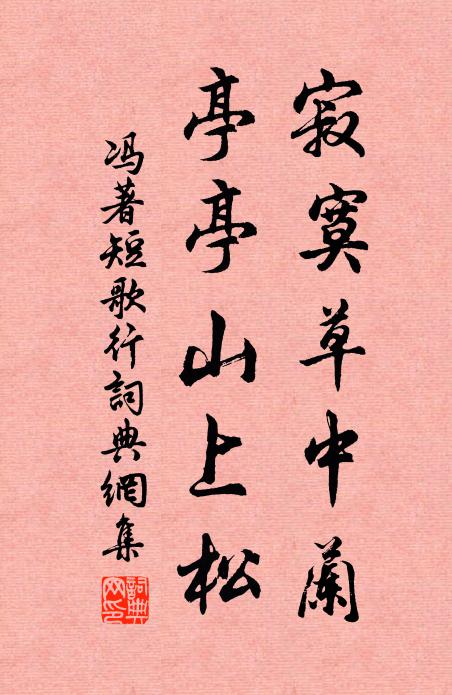 寂寞草中蘭
亭亭山上松
冯著短歌行詞典網集
詞典网印